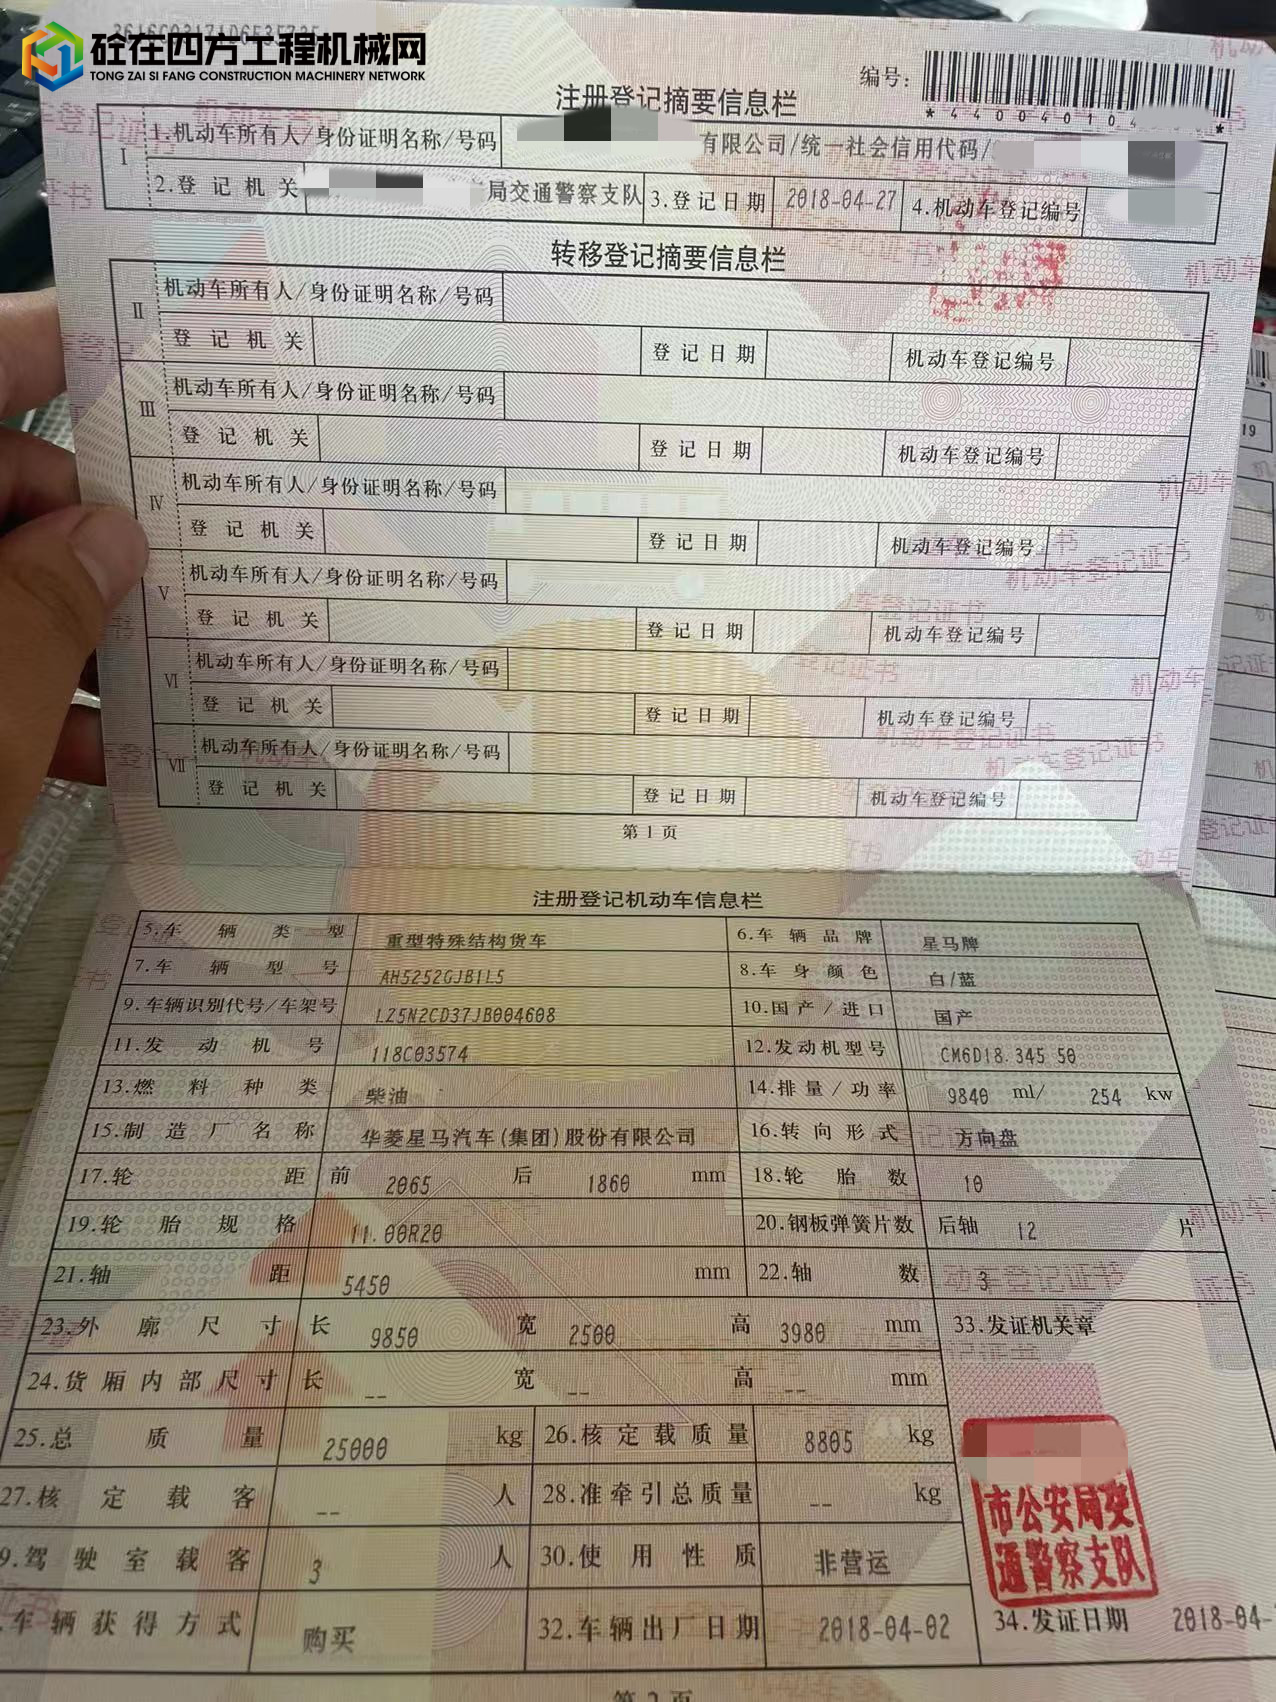 砼在四方工程机械网
TONG ZAI SI FANG CONSTRUCTION MACHINERY NETWORK
编号：
*440040104 *
注册登记摘要信息栏
I 1.机动车所有人/身份证明名称/号码 有限公司/统一社会信用代码/
2.登记机关 局交通警察支队 3.登记日期 2018-04-27 4.机动车登记编号
转移登记摘要信息栏
II 机动车所有人/身份证明名称/号码
登记机关 登记日期 机动车登记编号
III 机动车所有人/身份证明名称/号码
登记机关 登记日期 机动车登记编号
IV 机动车所有人/身份证明名称/号码
登记机关 登记日期 机动车登记编号
V 机动车所有人/身份证明名称/号码
登记机关 登记日期 机动车登记编号
VI 机动车所有人/身份证明名称/号码
登记机关 登记日期 机动车登记编号
VII 机动车所有人/身份证明名称/号码
登记机关 登记日期 机动车登记编号
第1页
注册登记机动车信息栏
5.车辆类型 重型特殊结构货车 6.车辆品牌 星马牌
7.车辆型号 AH5252GJB1L5 8.车身颜色 白/蓝
9.车辆识别代号/车架号 LZ5N2CD37JB004608 10.国产/进口 国产
11.发动机号 118C03574 12.发动机型号 CM6D18.345 50
13.燃料种类 柴油 14.排量/功率 9840 ml/ 254 kw
15.制造厂名称 华菱星马汽车(集团)股份有限公司 16.转向形式 方向盘
17.轮距 前 2065 后 1860 mm 18.轮胎数 10
19.轮胎规格 11.00R20 20.钢板弹簧片数 后轴 12 片
21.轴距 5450 mm 22.轴数 3
23.外廓尺寸 长 9850 宽 2500 高 3980 mm 33.发证机关章
24.货厢内部尺寸 长 -- 宽 -- 高 -- mm
25.总质量 25000 kg 26.核定载质量 8805 kg
27.核定载客 -- 人 28.准牵引总质量 -- kg
市公安局交
通警察支队
9.驾驶室载客 3 人 30.使用性质 非营运
.车辆获得方式 购买 32.车辆出厂日期 2018-04-02 34.发证日期 2018-04-
第2页